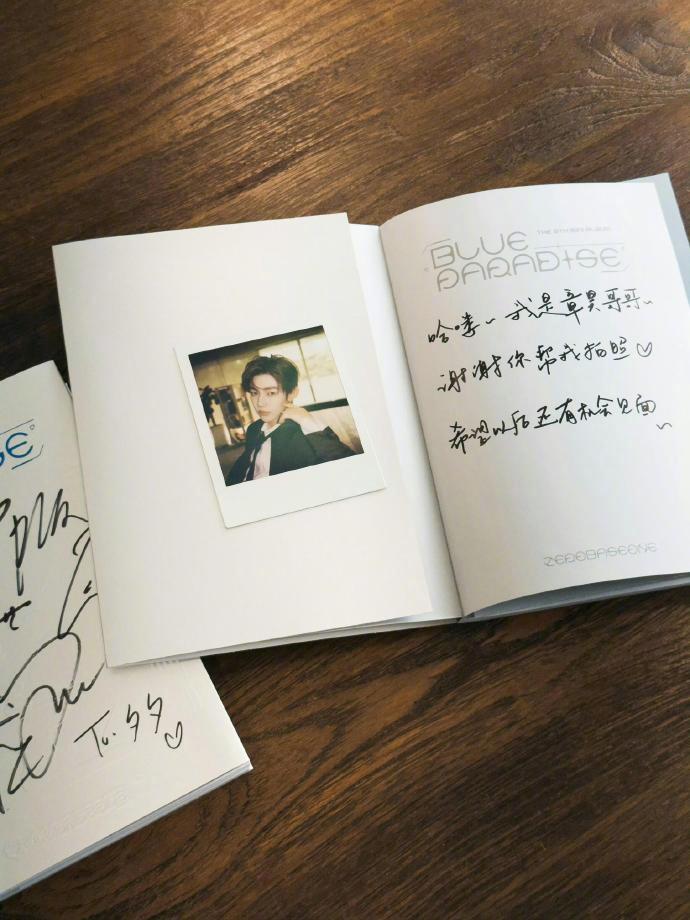 THE 5TH MINI ALBUM
BLUE
PARADISE
哈喽~我是章昊哥哥~
谢谢你帮我拍照♡
希望以后还有机会见面~
ZEROBASEONE
SE
To. 夕夕♡